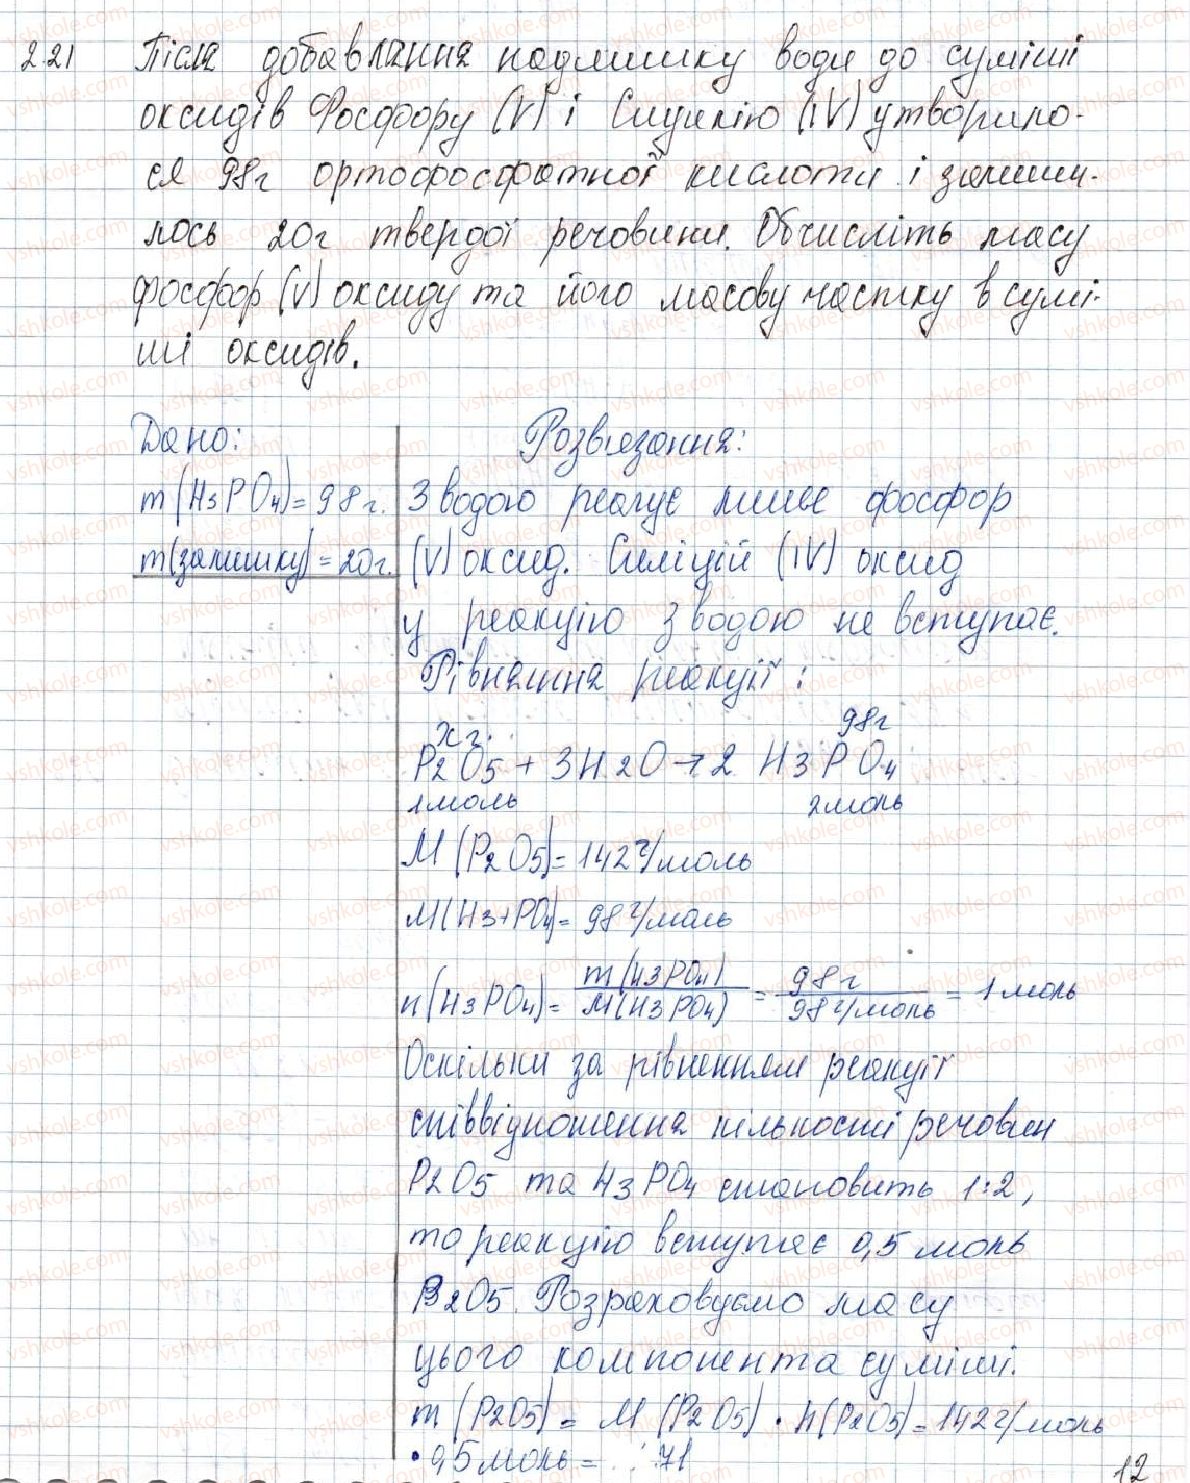 2.21 Після добавляння надлишку води до суміші
оксидів Фосфору (V) і Силіцію (IV) утворило-
ся 98г ортофосфатної кислоти і залиши-
лось 20г твердої речовини. Обчисліть масу
фосфор (V) оксиду та його масову частку в сумі-
ші оксидів.
Дано:
m(H3PO4)=98г.
m(залишку)=20г.
Розв'язання:
З водою реагує лише фосфор
(V) оксид. Силіцій (IV) оксид
у реакцію з водою не вступає.
Рівняння реакції:
xг. 98г
P2O5 + 3H2O → 2 H3PO4
1моль 2моль
M(P2O5)= 142г/моль
M(H3+PO4)= 98г/моль
n(H3PO4)= m(H3PO4)/M(H3PO4) = 98г/98г/моль = 1моль
Оскільки за рівненням реакції
співвідношення кількості речовин
P2O5 та H3PO4 становить 1:2,
то реакцію вступає 0,5 моль
P2O5. Розраховуємо масу
цього компонента суміші.
m(P2O5) = M(P2O5) · n(P2O5)= 142г/моль
· 0,5моль = 71
12
vshkole.com